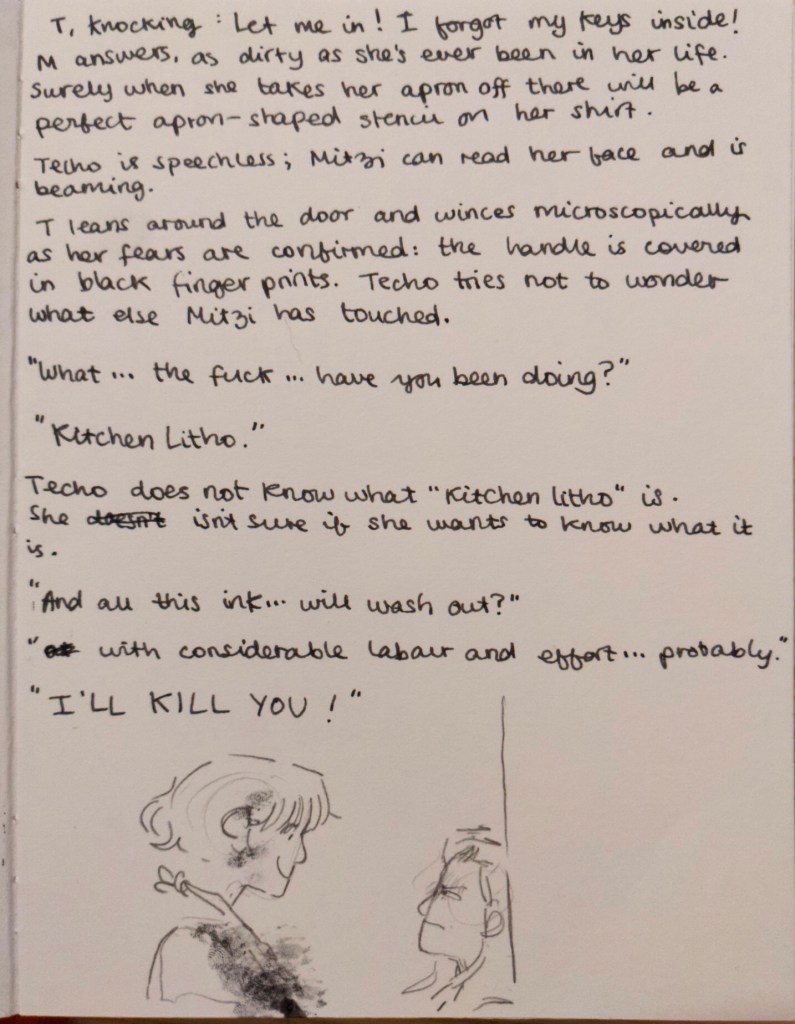 T, knocking : Let me in! I forgot my keys inside!
M answers, as dirty as she's ever been in her life.
Surely when she takes her apron off there will be a
perfect apron-shaped stencil on her shirt.
Techo is speechless; Mitzi can read her face and is
beaming.
T leans around the door and winces microscopically
as her fears are confirmed: the handle is covered
in black finger prints. Techo tries not to wonder
what else Mitzi has touched.
"What... the fuck... have you been doing?"
"Kitchen Litho."
Techo does not know what "Kitchen litho" is.
She doesn't isn't sure if she wants to know what it
is.
"And all this ink... will wash out?"
"with considerable labour and effort... probably."
"I'LL KILL YOU!"